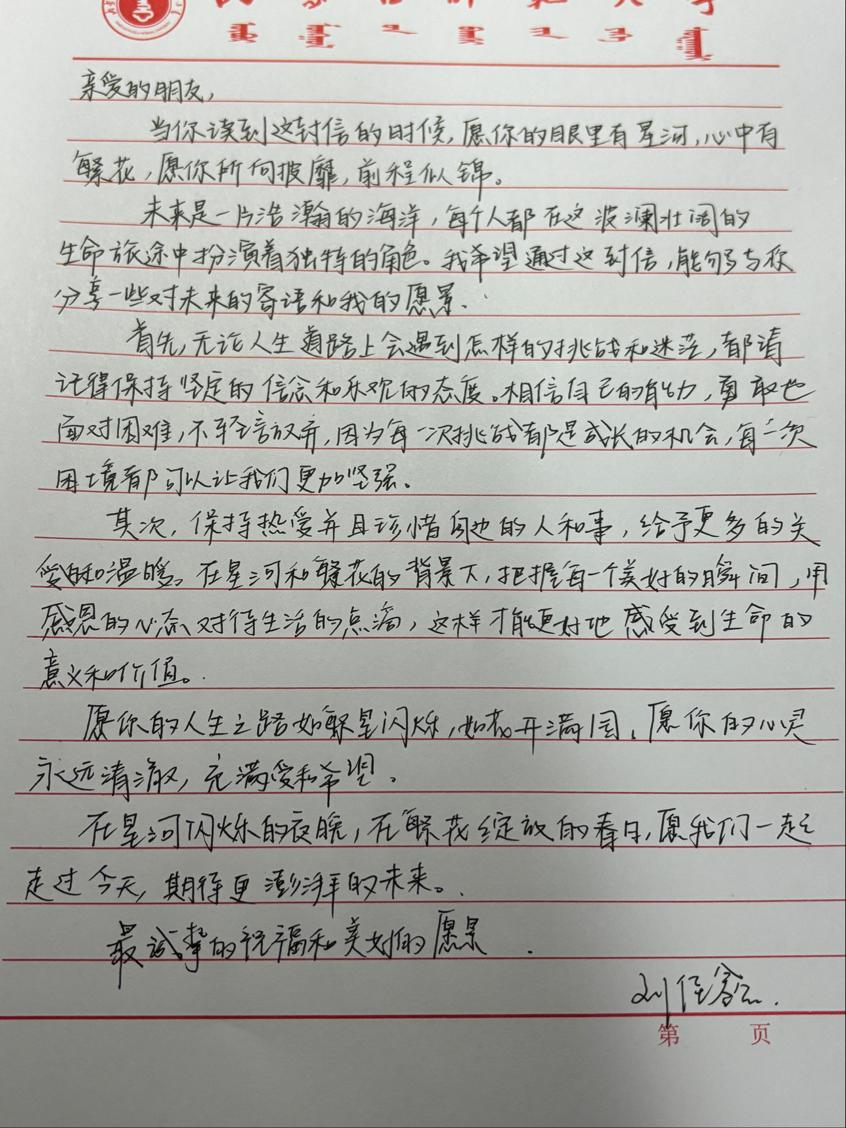 亲爱的朋友,
当你读到这封信的时候,愿你的眼里有星河,心中有
繁花,愿你所向披靡,前程似锦。
未来是一片浩瀚的海洋,每个人都在这波澜壮阔的
生命旅途中扮演着独特的角色。我希望通过这封信,能够与你
分享一些对未来的寄语和我的愿景.
首先,无论人生道路上会遇到怎样的挑战和迷茫,都请
记得保持坚定的信念和乐观的态度。相信自己的能力,勇敢地
面对困难,不轻言放弃,因为每一次挑战都是成长的机会,每一次
困境都可以让我们更加坚强。
其次,保持热爱并且珍惜身边的人和事,给予更多的关
爱和温暖。在星河和繁花的背景下,把握每一个美好的瞬间,用
感恩的心态对待生活的点滴,这样才能更好地感受到生命的
意义和价值。
愿你的人生之路如繁星闪烁,如花开满园,愿你的心灵
永远清澈,充满爱和希望。
在星河闪烁的夜晚,在繁花绽放的春日,愿我们一起
走过今天,期待更澎湃的未来。
最诚挚的祝福和美好的愿景.
第 页